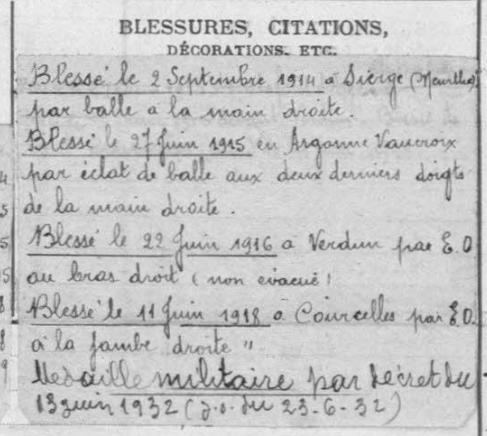 BLESSURES, CITATIONS,
DÉCORATIONS, ETC.
Blessé le 2 Septembre 1914 à Dierge (Meurthe)
par balle à la main droite.
Blessé le 27 Juin 1915 en Argonne Vaucroix
par éclat de balle aux deux derniers doigts
de la main droite.
Blessé le 22 Juin 1916 à Verdun par E.O
au bras droit (non evacué)
Blessé le 11 Juin 1918 à Courcelles par E.O.
à la jambe droite "
Medaille militaire par decret du
13 juin 1932 (J.O. du 23-6-32)